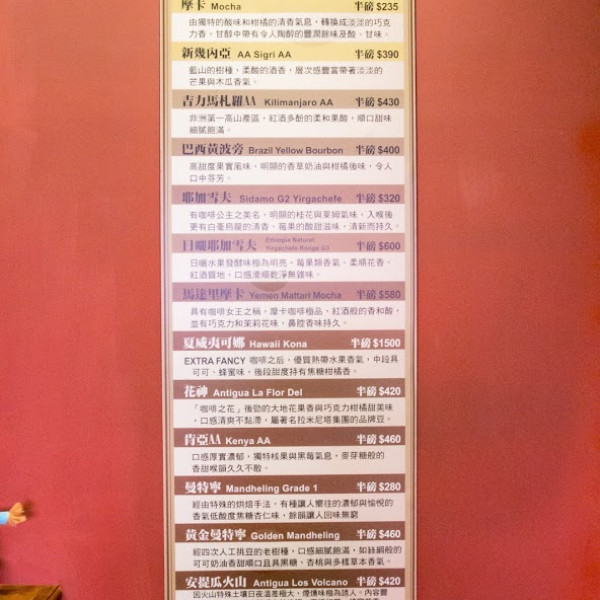 摩卡 Mocha 半磅 $235
由獨特的酸味和柑橘的清香氣息，轉換成淡淡的巧克
力香，甘醇中帶有令人陶醉的豐潤餘味及酸、甘味。
新幾內亞 AA Sigri AA 半磅 $390
藍山的樹種，柔酸的酒香，層次感豐富帶著淡淡的
芒果與木瓜香氣。
吉力馬札羅AA Kilimanjaro AA 半磅 $430
非洲第一高山產區，紅酒多酚的柔和果酸，順口甜味
細膩飽滿。
巴西黃波旁 Brazil Yellow Bourbon 半磅 $400
高甜度果實風味、明顯的香草奶油與柑橘後味，令人
口中芬芳。
耶加雪夫 Sidamo G2 Yirgachefe 半磅 $320
有咖啡公主之美名，明顯的桂花與萊姆氣味，入喉後
更有白毫烏龍的清香、莓果的酸甜滋味，清新而持久。
日曬耶加雪夫 Ethiopia Natural Yirgachefe Konga G3 半磅 $600
日曬水果發酵味極為明亮，莓果類香氣、柔順花香，
紅酒質地，口感滑順乾淨無雜味。
馬達里摩卡 Yemen Mattari Mocha 半磅 $580
具有咖啡女王之稱，摩卡咖啡極品，紅酒般的香和酸，
並有巧克力和茉莉花味，鼻腔香味持久。
夏威夷可娜 Hawaii Kona 半磅 $1500
EXTRA FANCY 咖啡之后，優質熱帶水果香氣，中段具
可可、蜂蜜味，後段甜度持有焦糖柑橘香。
花神 Antigua La Flor Del 半磅 $420
「咖啡之花」後勁的大地花果香與巧克力柑橘甜美味
，口感清爽不黏滯，屬著名拉米尼塔集團的品牌豆。
肯亞AA Kenya AA 半磅 $460
口感厚實濃郁，獨特核果與黑莓氣息，麥芽糖般的
香甜喉韻久久不散。
曼特寧 Mandheling Grade 1 半磅 $280
經由特殊的烘焙手法，有種讓人嚮往的濃郁與愉悅的
香氣低酸度焦糖杏仁味，餘韻讓人回味無窮
黃金曼特寧 Golden Mandheling 半磅 $460
經四次人工挑豆的老樹種，口感細膩飽滿，如絲綢般的
可可奶油香甜順口且具黑糖、香桃與多樣草本香氣。
安提瓜火山 Antigua Los Volcano 半磅 $420
因火山特殊土壤日夜溫差極大，煙燻味極為誘人。內容豐